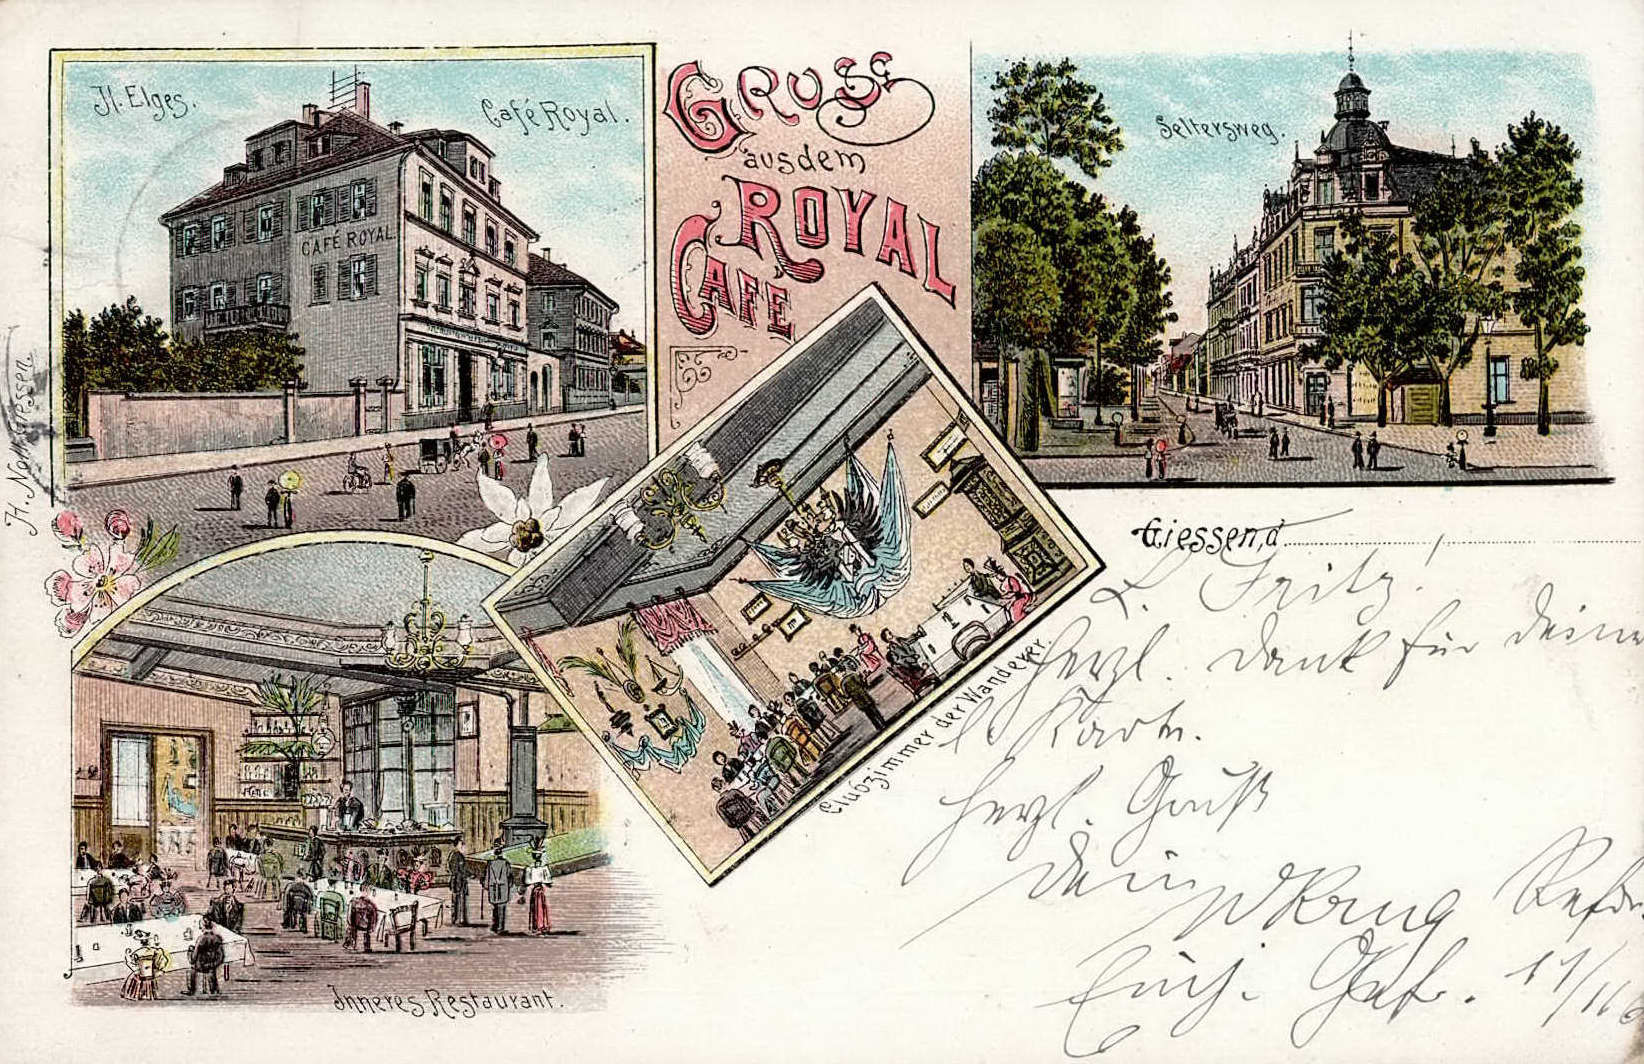 H. Elges.
Café Royal.
CAFÉ ROYAL
Gruss
aus dem
ROYAL
CAFÉ
Seltersweg.
Giessen, d
L. Fritz!
Herzl. Dank für Deine
l. Karte.
Herzl. Gruß
Dein WKrug
Einj. Gefr. 17/11
Clubzimmer der Wanderer.
Inneres Restaurant.
Giessen.